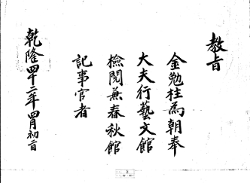 教旨
金勉柱爲朝奉
大夫行藝文館
檢閱兼春秋館
記事官者
乾隆四十二年四月初二日